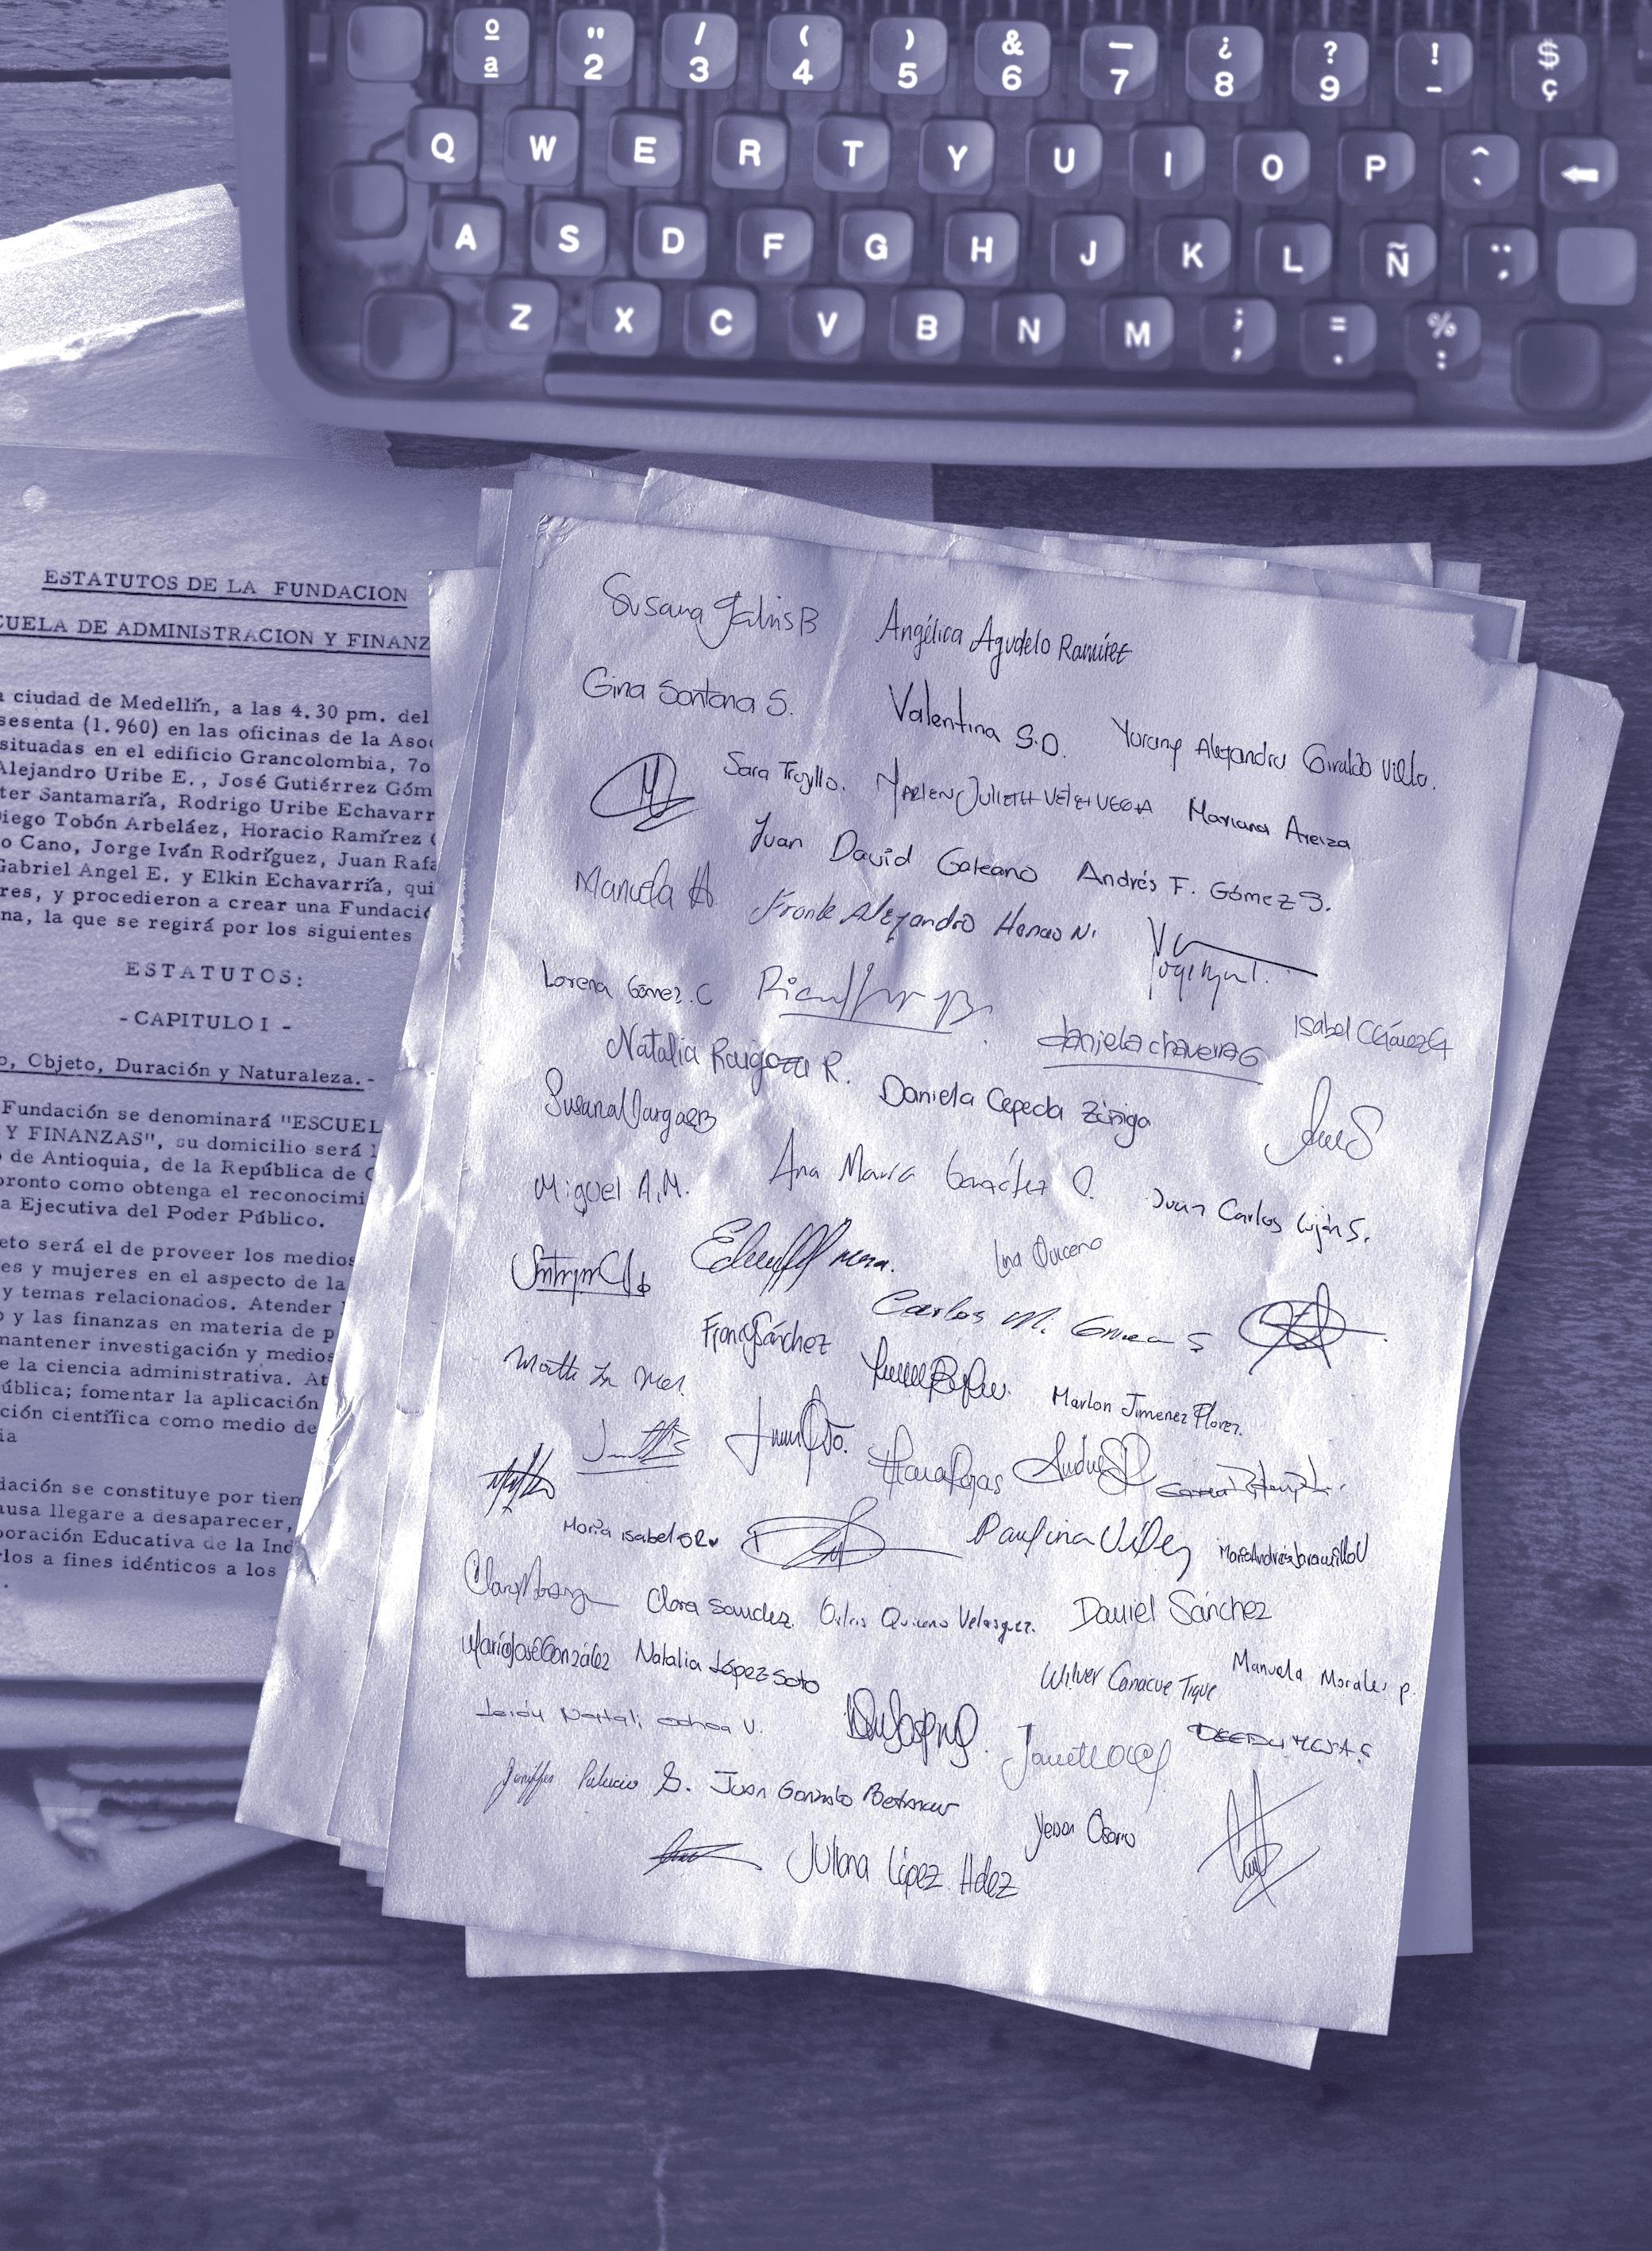 º " / ( ) & — ¿ ? ! $
ª 2 3 4 5 6 7 8 9 - ç
Q W E R T Y U I O P ^ ←
A S D F G H J K L Ñ ¨ ,
Z X C V B N M ; = %
, . :
ESTATUTOS DE LA FUNDACION
CUELA DE ADMINISTRACION Y FINANZ
a ciudad de Medellín, a las 4.30 pm. del
sesenta (1.960) en las oficinas de la Aso
situadas en el edificio Grancolombia, 7o
Alejandro Uribe E., José Gutiérrez Góm
ter Santamaría, Rodrigo Uribe Echavarr
Diego Tobón Arbeláez, Horacio Ramírez
o Cano, Jorge Iván Rodríguez, Juan Rafa
Gabriel Angel E. y Elkin Echavarría, qui
res, y procedieron a crear una Fundació
na, la que se regirá por los siguientes
ESTATUTOS:
- CAPITULO I -
o, Objeto, Duración y Naturaleza.-
Fundación se denominará "ESCUEL
Y FINANZAS", su domicilio será
de Antioquia, de la República de
pronto como obtenga el reconocimi
a Ejecutiva del Poder Público.
eto será el de proveer los medios
es y mujeres en el aspecto de la
y temas relacionados. Atender
o y las finanzas en materia de p
mantener investigación y medios
e la ciencia administrativa. At
ública; fomentar la aplicación
ción científica como medio de
ia
dación se constituye por tiem
ausa llegare a desaparecer,
poración Educativa de la Ind
rlos a fines idénticos a los
Susana Galvis B Angélica Agudelo Ramírez
Gina Santana S. Valentina S.O. Alejandra Giraldo Villa.
Sara Trujillo. Marlen Julieth Vélez Vega Mariana Areiza
Juan David Galeano Andrés F. Gómez S.
Manuela H. Frank Alejandro Henao N.
Lorena Gómez.C
Natalia Raigoza R. daniela chaverra G Isabel
Susana Vargas B Daniela Cepeda Zúñiga
Miguel A.M. Ana María González O. Juan Carlos Luján S.
Lina Quiceno
Carlos M.
Francy Sánchez
Marlon Jimenez Florez.
María Isabel GR♥ Paulina Vélez María Andrea Jaramillo V
Clara Sánchez Quiceno Velásquez. Daniel Sánchez
María José González Natalia López Soto Wilver Canacue Tique Manuela Morales P.
Leidy Natali Ochoa V.
Jeniffer Palacio S. Juan Gonzalo Betancur
Yeison Osorio
Juliana López Hdez